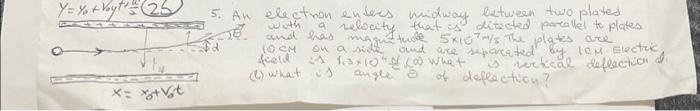 y = y₀ + v₀yt + at²/2 (25)
5. An electron enters midway between two plated
with a velocity that is directed parallel to plates
and has magnitude 5×10⁷ m/s The plates are
10 cm on a side and are separated by 1 cm. Electric
field is 1.3×10⁴ (a) what is vertical deflection d.
(b) what is angle θ of deflection?
θ
d
x = x₀ + v₀t